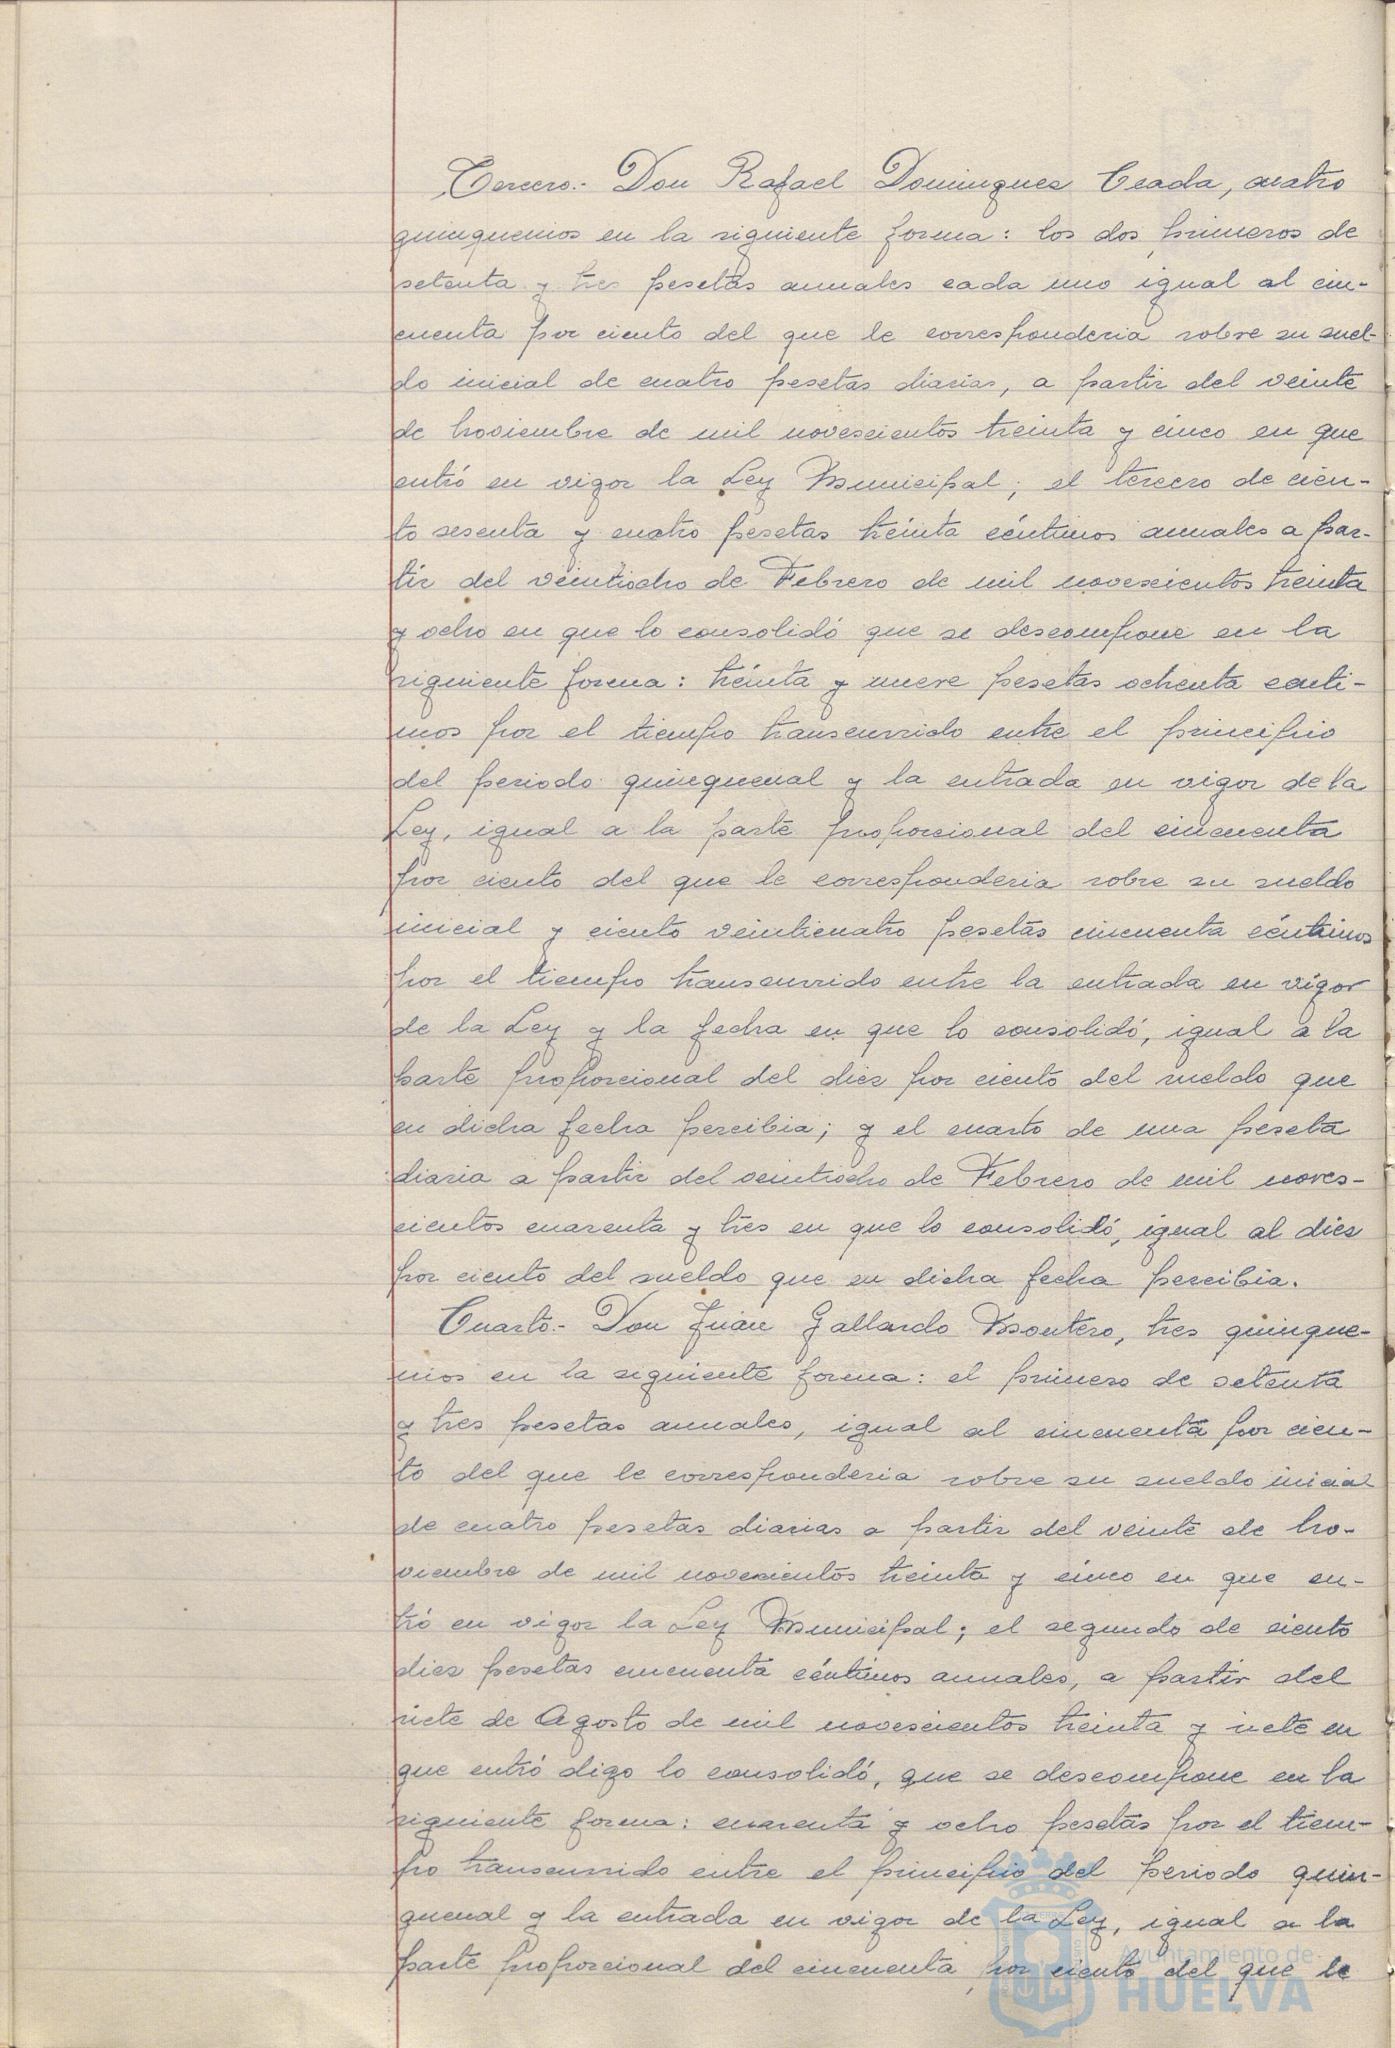 Tercero.- Don Rafael Dominguez Ceada, cuatro
quinquenios en la siguiente forma: los dos primeros de
setenta y tres pesetas anuales cada uno igual al cin-
cuenta por ciento del que le corresponderia sobre su suel-
do inicial de cuatro pesetas diarias, a partir del veinte
de Noviembre de mil novescientos treinta y cinco en que
entró en vigor la Ley Municipal; el tercero de cien-
to sesenta y cuatro pesetas treinta céntimos anuales a par-
tir del veintiocho de Febrero de mil novescientos treinta
y ocho en que lo consolidó que se descompone en la
siguiente forma: treinta y nueve pesetas ochenta centi-
mos por el tiempo transcurrido entre el principio
del periodo quinquenal y la entrada en vigor de la
Ley, igual a la parte proporcional del cincuenta
por ciento del que le corresponderia sobre su sueldo
inicial y ciento veinticuatro pesetas cincuenta céntimos
por el tiempo transcurrido entre la entrada en vigor
de la Ley y la fecha en que lo consolidó, igual a la
parte proporcional del diez por ciento del sueldo que
en dicha fecha percibia; y el cuarto de una peseta
diaria a partir del veintiocho de Febrero de mil noves-
cientos cuarenta y tres en que lo consolidó, igual al diez
por ciento del sueldo que en dicha fecha percibia.
Cuarto.- Don Juan Gallardo Montero, tres quinque-
nios en la siguiente forma: el primero de setenta
y tres pesetas anuales, igual al cincuenta por cien-
to del que le corresponderia sobre su sueldo inicial
de cuatro pesetas diarias a partir del veinte de No-
viembre de mil novecientos treinta y cinco en que en-
tró en vigor la Ley Municipal; el segundo de ciento
diez pesetas cincuenta céntimos anuales, a partir del
siete de Agosto de mil novescientos treinta y siete en
que entró digo lo consolidó, que se descompone en la
siguiente forma: cuarenta y ocho pesetas por el tiem-
po transcurrido entre el principio del periodo quin-
quenal y la entrada en vigor de la Ley, igual a la
parte proporcional del cincuenta por ciento del que le
Ayuntamiento de
HUELVA